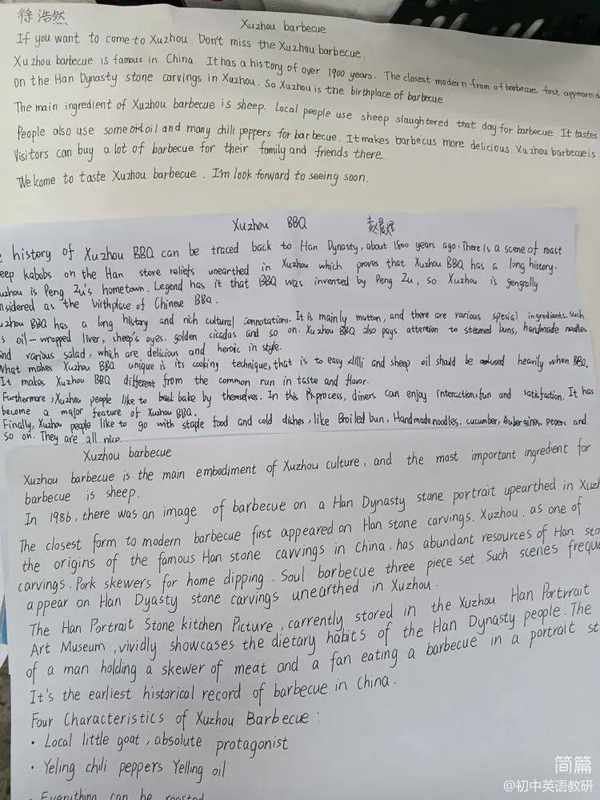 徐浩然
Xuzhou barbecue
If you want to come to Xuzhou. Don't miss the Xuzhou barbecue.
Xuzhou barbecue is famous in China. It has a history of over 1900 years. The closest modern from of barbecue first appeared
on the Han Dynasty stone carvings in Xuzhou. So Xuzhou is the birthplace of barbecue
The main ingredient of Xuzhou barbecue is sheep. Local people use sheep slaughtered that day for barbecue. It tastes
People also use some oil and many chili peppers for barbecue. It makes barbecus more delicious. Xuzhou barbecue is
Visitors can buy a lot of barbecue for their family and friends there.
Welcome to taste Xuzhou barbecue. I'm look forward to seeing soon.
Xuzhou BBQ
history of Xuzhou BBQ can be traced back to Han Dynasty, about years ago. There is a scene of
kabobs on the Han stone reliefs unearthed in Xuzhou which proves that Xuzhou BBQ has a long history.
is Peng Zu's hometown. Legend has it that BBQ was invented by Peng Zu, so Xuzhou is
as the birthplace of Chinese BBQ.
BBQ has a long history and rich cultural connotations. It is mainly mutton, and there are various special ingredients, such
oil-wrapped liver, sheep's eyes, golden cicadas and so on. Xuzhou BBQ also pays attention to steamed buns, handmade noodles
and various salad, which are delicious and heroic in style.
What makes Xuzhou BBQ unique is its cooking technique, that is to and sheep oil should be heavily when BBQ.
It makes Xuzhou BBQ different from the common run in taste and flavor.
Furthermore, Xuzhou people like to bake by themselves. In this process, diners can enjoy interaction, fun and satisfaction. It has
become a major feature of Xuzhou BBQ.
Finally, Xuzhou people like to go with staple food and cold dishes, like Broiled bun, Handmade noodles, cucumber, and
so on. They are all nice.
Xuzhou barbecue
Xuzhou barbecue is the main embodiment of Xuzhou culture, and the most important ingredient for
barbecue is sheep.
In 1986, there was an image of barbecue on a Han Dynasty stone portrait upearthed in
The closest form to modern barbecue first appeared on Han stone carvings. Xuzhou, as one of
the origins of the famous Han stone carvings in China, has abundant resources of Han
carvings. Pork skewers for home dipping. Soul barbecue three piece set Such scenes
appear on Han Dyasty stone carvings unearthed in Xuzhou.
The Han Portrait Stone kitchen Picture, carrently stored in the Xuzhou Han Portrait
Art Museum, vividly showcases the dietary habits of the Han Dynasty people. The
of a man holding a skewer of meat and a fan eating a barbecue in a portrait
It's the earliest historical record of barbecue in China.
Four Characteristics of Xuzhou Barbecue:
· Local little goat, absolute protagonist
· Yeling chili peppers Yelling oil
· Everything can be roasted
简篇
@初中英语教研